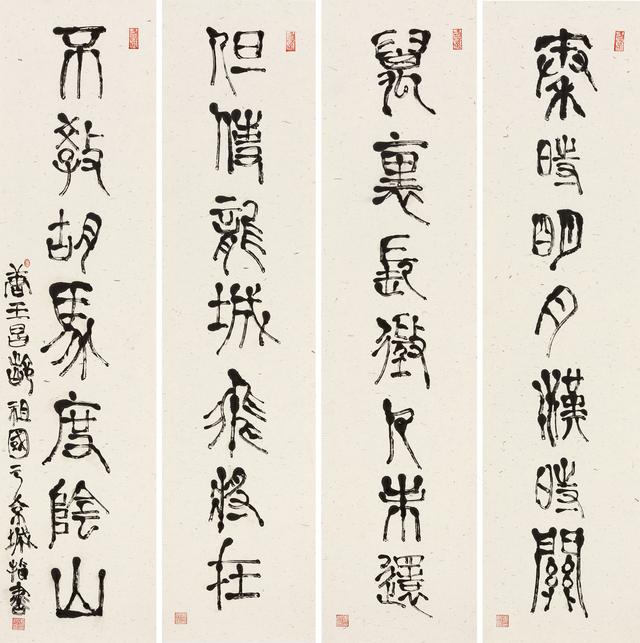 秦時明月漢時關
萬裏長徵人未還
但使龍城飛將在
不教胡馬度陰山
唐王昌齡 祖國